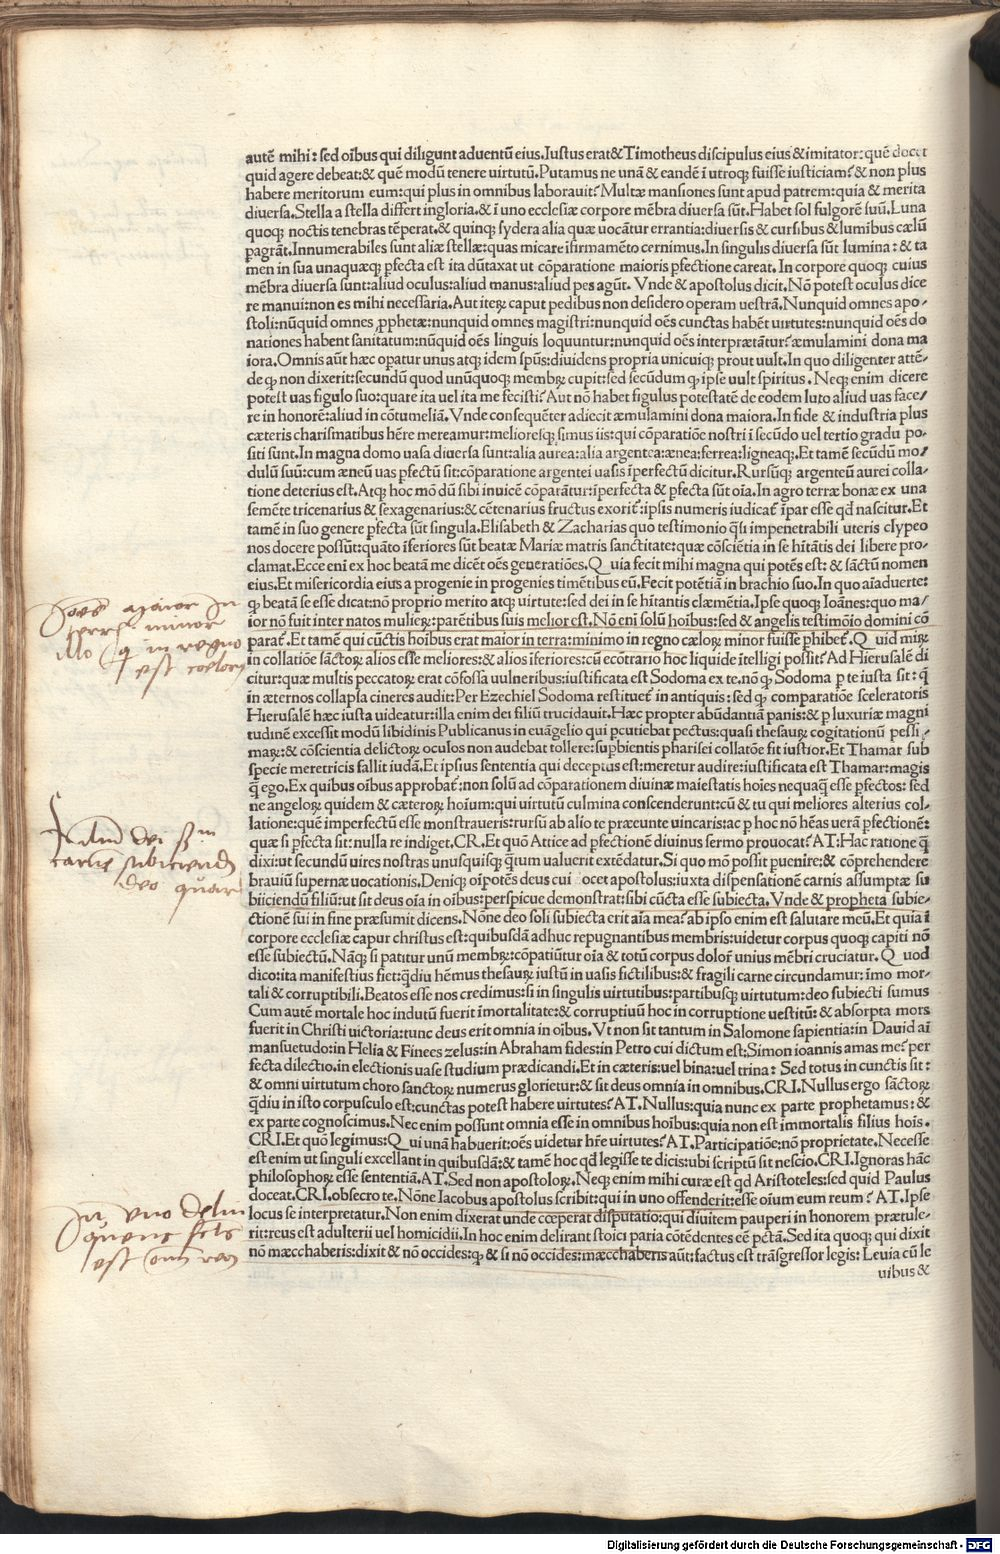 autē mihi: sed oībus qui diligunt aduentū eius. Iustus erat & Timotheus discipulus eius & imitator: quē docet
quid agere debeat: & quē modū tenere uirtutū. Putamus ne unā & eandē ī utroq; fuisse iusticiam? & non plus
habere meritorum eum: qui plus in omnibus laborauit? Multæ mansiones sunt apud patrem: quia & merita
diuersa. Stella a stella differt in gloria. & ī uno ecclesiæ corpore mēbra diuersa sūt. Habet sol fulgorē suū. Luna
quoq; noctis tenebras tēperat. & quinq; sydera alia quæ uocātur errantia: diuersis & cursibus & lumībus cælū
pagrāt. Innumerabiles sunt aliæ stellæ: quas micare ī firmamēto cernimus. In singulis diuersa sūt lumina: & ta
men in sua unaquæq; pfecta est ita dūtaxat ut cōparatione maioris pfectione careat. In corpore quoq; cuius
mēbra diuersa sunt: aliud oculus: aliud manus: aliud pes agūt. Vnde & apostolus dicit. Nō potest oculus dice
re manui: non es mihi necessaria. Aut iteꝝ caput pedibus non desidero operam uestrā. Nunquid omnes apo-
stoli: nūquid omnes ꝓphetæ: nunquid omnes magistri: nunquid oēs cunctas habēt uirtutes: nunquid oēs do
nationes habent sanitatum: nūquid oēs linguis loquuntur: nunquid oēs interprætātur? æmulamini dona ma
iora. Omnis aūt hæc opatur unus atq; idem spūs: diuidens propria unicuiq; prout uult. In quo diligenter attē-
de q̢ non dixerit: secundū quod unūquoq; membꝝ cupit: sed secūdum q̢ ipse uult spiritus. Neq; enim dicere
potest uas figulo suo: quare ita uel ita me fecisti? Aut nō habet figulus potestatē de eodem luto aliud uas face-
re in honorē: aliud in cōtumeliā. Vnde consequēter adiecit æmulamini dona maiora. In fide & industria plus
cæteris charismatibus hēre mereamur: melioresq; simus iis: qui cōparatiōe nostri ī secūdo uel tertio gradu po-
siti sunt. In magna domo uasa diuersa sunt: alia aurea: alia argentea: ænea: ferrea: ligneaq;. Et tamē secūdū mo-
dulū suū: cum æneū uas pfectū sit: cōparatione argentei uasis īperfectū dicitur. Rursūq; argenteū aurei colla-
tione deterius est. Atq; hoc mō dū sibi inuicē cōparātur: īperfecta & pfecta sūt oīa. In agro terræ bonæ ex una
semēte tricenarius & sexagenarius: & cētenarius fructus exorit̄: ipsis numeris iudicat̄ īpar esse qd nascitur. Et
tamē in suo genere pfecta sūt singula. Elisabeth & Zacharias quo testimonio q̄si impenetrabili uteris clypeo
nos docere possūt: quāto īferiores sūt beatæ Mariæ matris sanctitate: quæ cōsciētia in se hītātis dei libere pro-
clamat. Ecce eni ex hoc beatā me dicēt oēs generatiōes. Quia fecit mihi magna qui potēs est: & sāctū nomen
eius. Et misericordia eius a progenie in progenies timētibus eū. Fecit potētiā in brachio suo. In quo aīaduerte:
q̢ beatā se esse dicat: nō proprio merito atq; uirtute: sed dei in se hītantis clæmētia. Ipse quoq; Ioānes: quo ma-
ior nō fuit inter natos mulieꝝ: parētibus suis melior est. Nō eni solū hoībus: sed & angelis testimōio domini cō
parat̄. Et tamē qui cūctis hoībus erat maior in terra: minimo in regno cæloꝝ minor fuisse phibet̄. Quid miꝝ
in collatiōe sāctoꝝ alios esse meliores: & alios īferiores: cū ecōtrario hoc liquide ītelligi possit? Ad Hierusalē di
citur: quæ multis peccatoꝝ erat cōfossa uulneribus: iustificata est Sodoma ex te. nō q̢ Sodoma p te iusta sit: q̄
in æternos collapsa cineres audit: Per Ezechiel Sodoma restituet̄ in antiquis: sed q̢ comparatiōe sceleratoris
Hierusalē hæc iusta uideatur: illa enim dei filiū trucidauit. Hæc propter abūdantiā panis: & p luxuriæ magni
tudinē excessit modū libidinis Publicanus in euāgelio qui pcutiebat pectus: quasi thesauꝝ cogitationū pessi
maꝝ: & cōscientia delictoꝝ oculos non audebat tollere: supbientis pharisei collatōe fit iustior. Et Thamar sub
specie meretricis fallit iudā. Et ipsius sententia qui deceptus est: meretur audire: iustificata est Thamar: magis
q̄ ego. Ex quibus oībus approbat̄: non solū ad cōparationem diuinæ maiestatis hoīes nequaq̄ esse pfectos: sed
ne angeloꝝ quidem & cæteroꝝ hoīum: qui uirtutū culmina conscenderunt: cū & tu qui meliores alterius col-
latione: quē imperfectū esse monstraueris: rursū ab alio te præeunte uincaris: ac p hoc nō hēas uerā pfectionē:
quæ si pfecta sit: nulla re indiget. CR. Et quō Attice ad pfectionē diuinus sermo prouocat? AT: Hac ratione q̄
dixi: ut secundū uires nostras unusquisq; q̄tum ualuerit extēdatur. Si quo mō possit puenire: & cōprehendere
brauiū supernæ uocationis. Deniq; oīpotēs deus cui  ocet apostolus: iuxta dispensationē carnis assumptæ su
biiciendū filiū: ut sit deus oīa in oībus: perspicue demonstrat: sibi cūcta esse subiecta. Vnde & propheta subie-
ctionē sui in fine præsumit dicens. Nōne deo soli subiecta erit aīa mea? ab ipso enim est salutare meū. Et quia ī
corpore ecclesiæ capur christus est: quibusdā adhuc repugnantibus membris: uidetur corpus quoq; capiti nō
esse subiectū. Nāq; si patitur unū membꝝ: cōpatiūtur oīa & totū corpus dolor̄ unius mēbri cruciatur. Quod
dico: ita manifestius fiet: q̄diu hēmus thesauꝝ iustū in uasis fictilibus: & fragili carne circundamur: īmo mor-
tali & corruptibili. Beatos esse nos credimus: si in singulis uirtutibus: partibusq; uirtutum: deo subiecti sumus
Cum autē mortale hoc indutū fuerit īmortalitate: & corruptiuū hoc in corruptione uestitū: & absorpta mors
fuerit in Christi uictoria: tunc deus erit omnia in oībus. Vt non sit tantum in Salomone sapientia: in Dauid aī
mansuetudo: in Helia & Finees zelus: in Abraham fides: in Petro cui dictum est: Simon ioannis amas me? per
fecta dilectio. in electionis uase studium prædicandi. Et in cæteris: uel bina: uel trina: Sed totus in cunctis sit:
& omni uirtutum choro sanctoꝝ numerus glorietur: & sit deus omnia in omnibus. CRI. Nullus ergo sāctoꝝ
q̄diu in isto corpusculo est: cunctas potest habere uirtutes? AT. Nullus: quia nunc ex parte prophetamus: &
ex parte cognoscimus. Nec enim possunt omnia esse in omnibus hoībus: quia non est immortalis filius hoīs.
CRI. Et quō legimus: Qui unā habuerit: oēs uidetur hr̄e uirtutes? AT. Participatiōe: nō proprietate. Necesse
est enim ut singuli excellant in quibusdā: & tamē hoc qd legisse te dicis: ubi scriptū sit nescio. CRI. Ignoras hāc
philosophoꝝ esse sententiā. AT. Sed non apostoloꝝ. Neq; enim mihi curæ est qd Aristoteles: sed quid Paulus
doceat. CRI. obsecro te. Nōne Iacobus apostolus scribit: qui in uno offenderit: esse oīum eum reum? AT. Ipse
locus se interpretatur. Non enim dixerat unde cœperat disputatio: qui diuitem pauperi in honorem prætule-
rit: reus est adulterii uel homicidii. In hoc enim delirant stoici paria cōtēdentes eē pctā. Sed ita quoq; qui dixit
nō mæcchaberis: dixit & nō occides: q̢ & si nō occides: mæcchaberis aūt: factus est trāsgressor legis: Leuia cū le
uibus &
Joēs maior in
terris minor
illo q in regno
est coelorum
Filium dei
carnē subiciendū
deo
In uno delin
quens
est
Digitalisierung gefördert durch die Deutsche Forschungsgemeinschaft - DFG